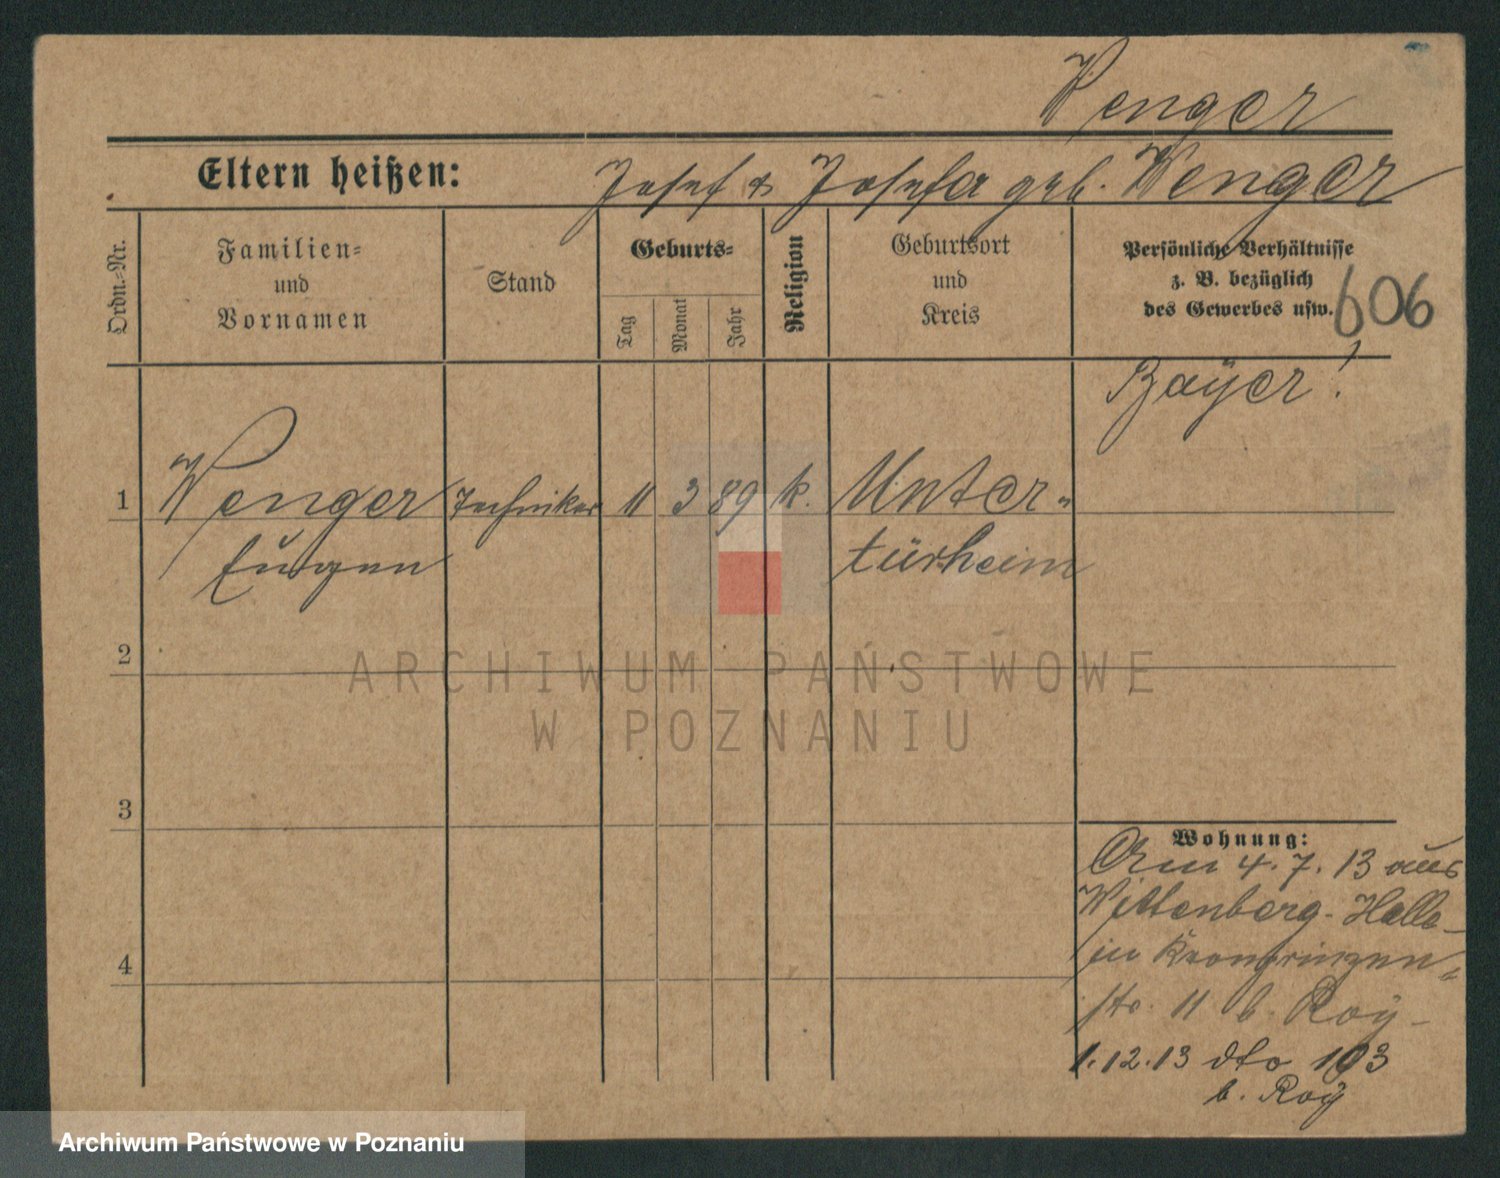 Wenger
Eltern heißen: Josef & Josefa geb. Wenger
Ordn.-Nr.
Familien-
und
Vornamen
Stand
Geburts-
Tag
Monat
Jahr
Religion
Geburtsort
und
Kreis
Persönliche Verhältnisse
z. B. bezüglich
des Gewerbes usw.
606
Bayer!
1 Wenger Techniker 11 3 89 k. Unter-
Eugen türheim
2
3
4
Wohnung:
Am 4.7.13 aus
Wittenberg-Halle
in Kronprinzen-
str. 11 b. Roy
1.12.13 dto 103
b. Roy
ARCHIWUM PAŃSTWOWE
W POZNANIU
Archiwum Państwowe w Poznaniu